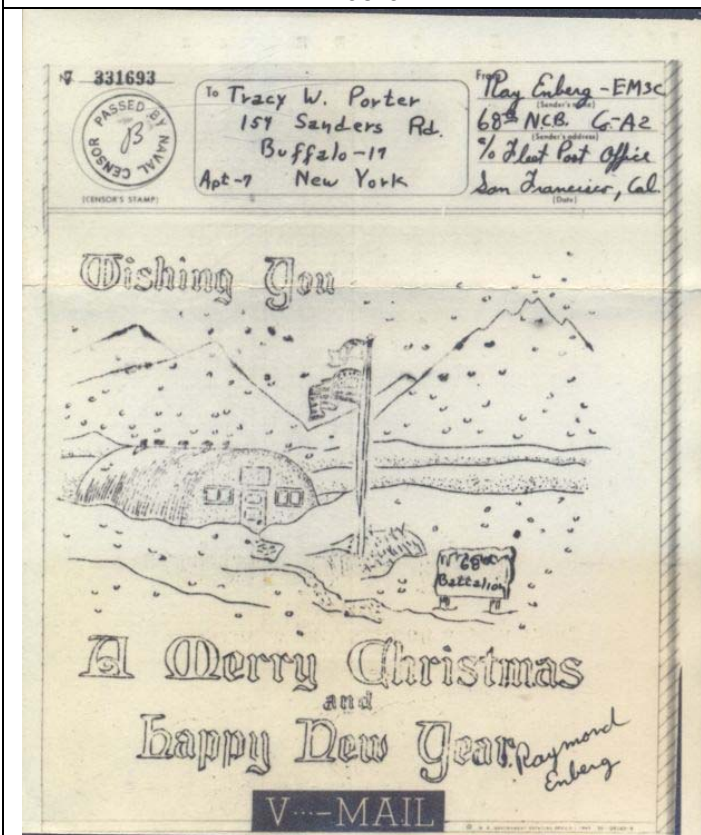 Nº 331693
PASSED BY
B
NAVAL CENSOR
(CENSOR'S STAMP)
To Tracy W. Porter
157 Sanders Rd.
Buffalo-17
Apt-7 New York
From
Ray Enberg-EM3C
(Sender's name)
68th N.C.B. Co-A2
(Sender's address)
℅ Fleet Post Office
San Francisco, Cal.
(Date)
Wishing You
68th
Battalion
A Merry Christmas
and
Happy New Year.
Raymond
Enberg
V···-MAIL